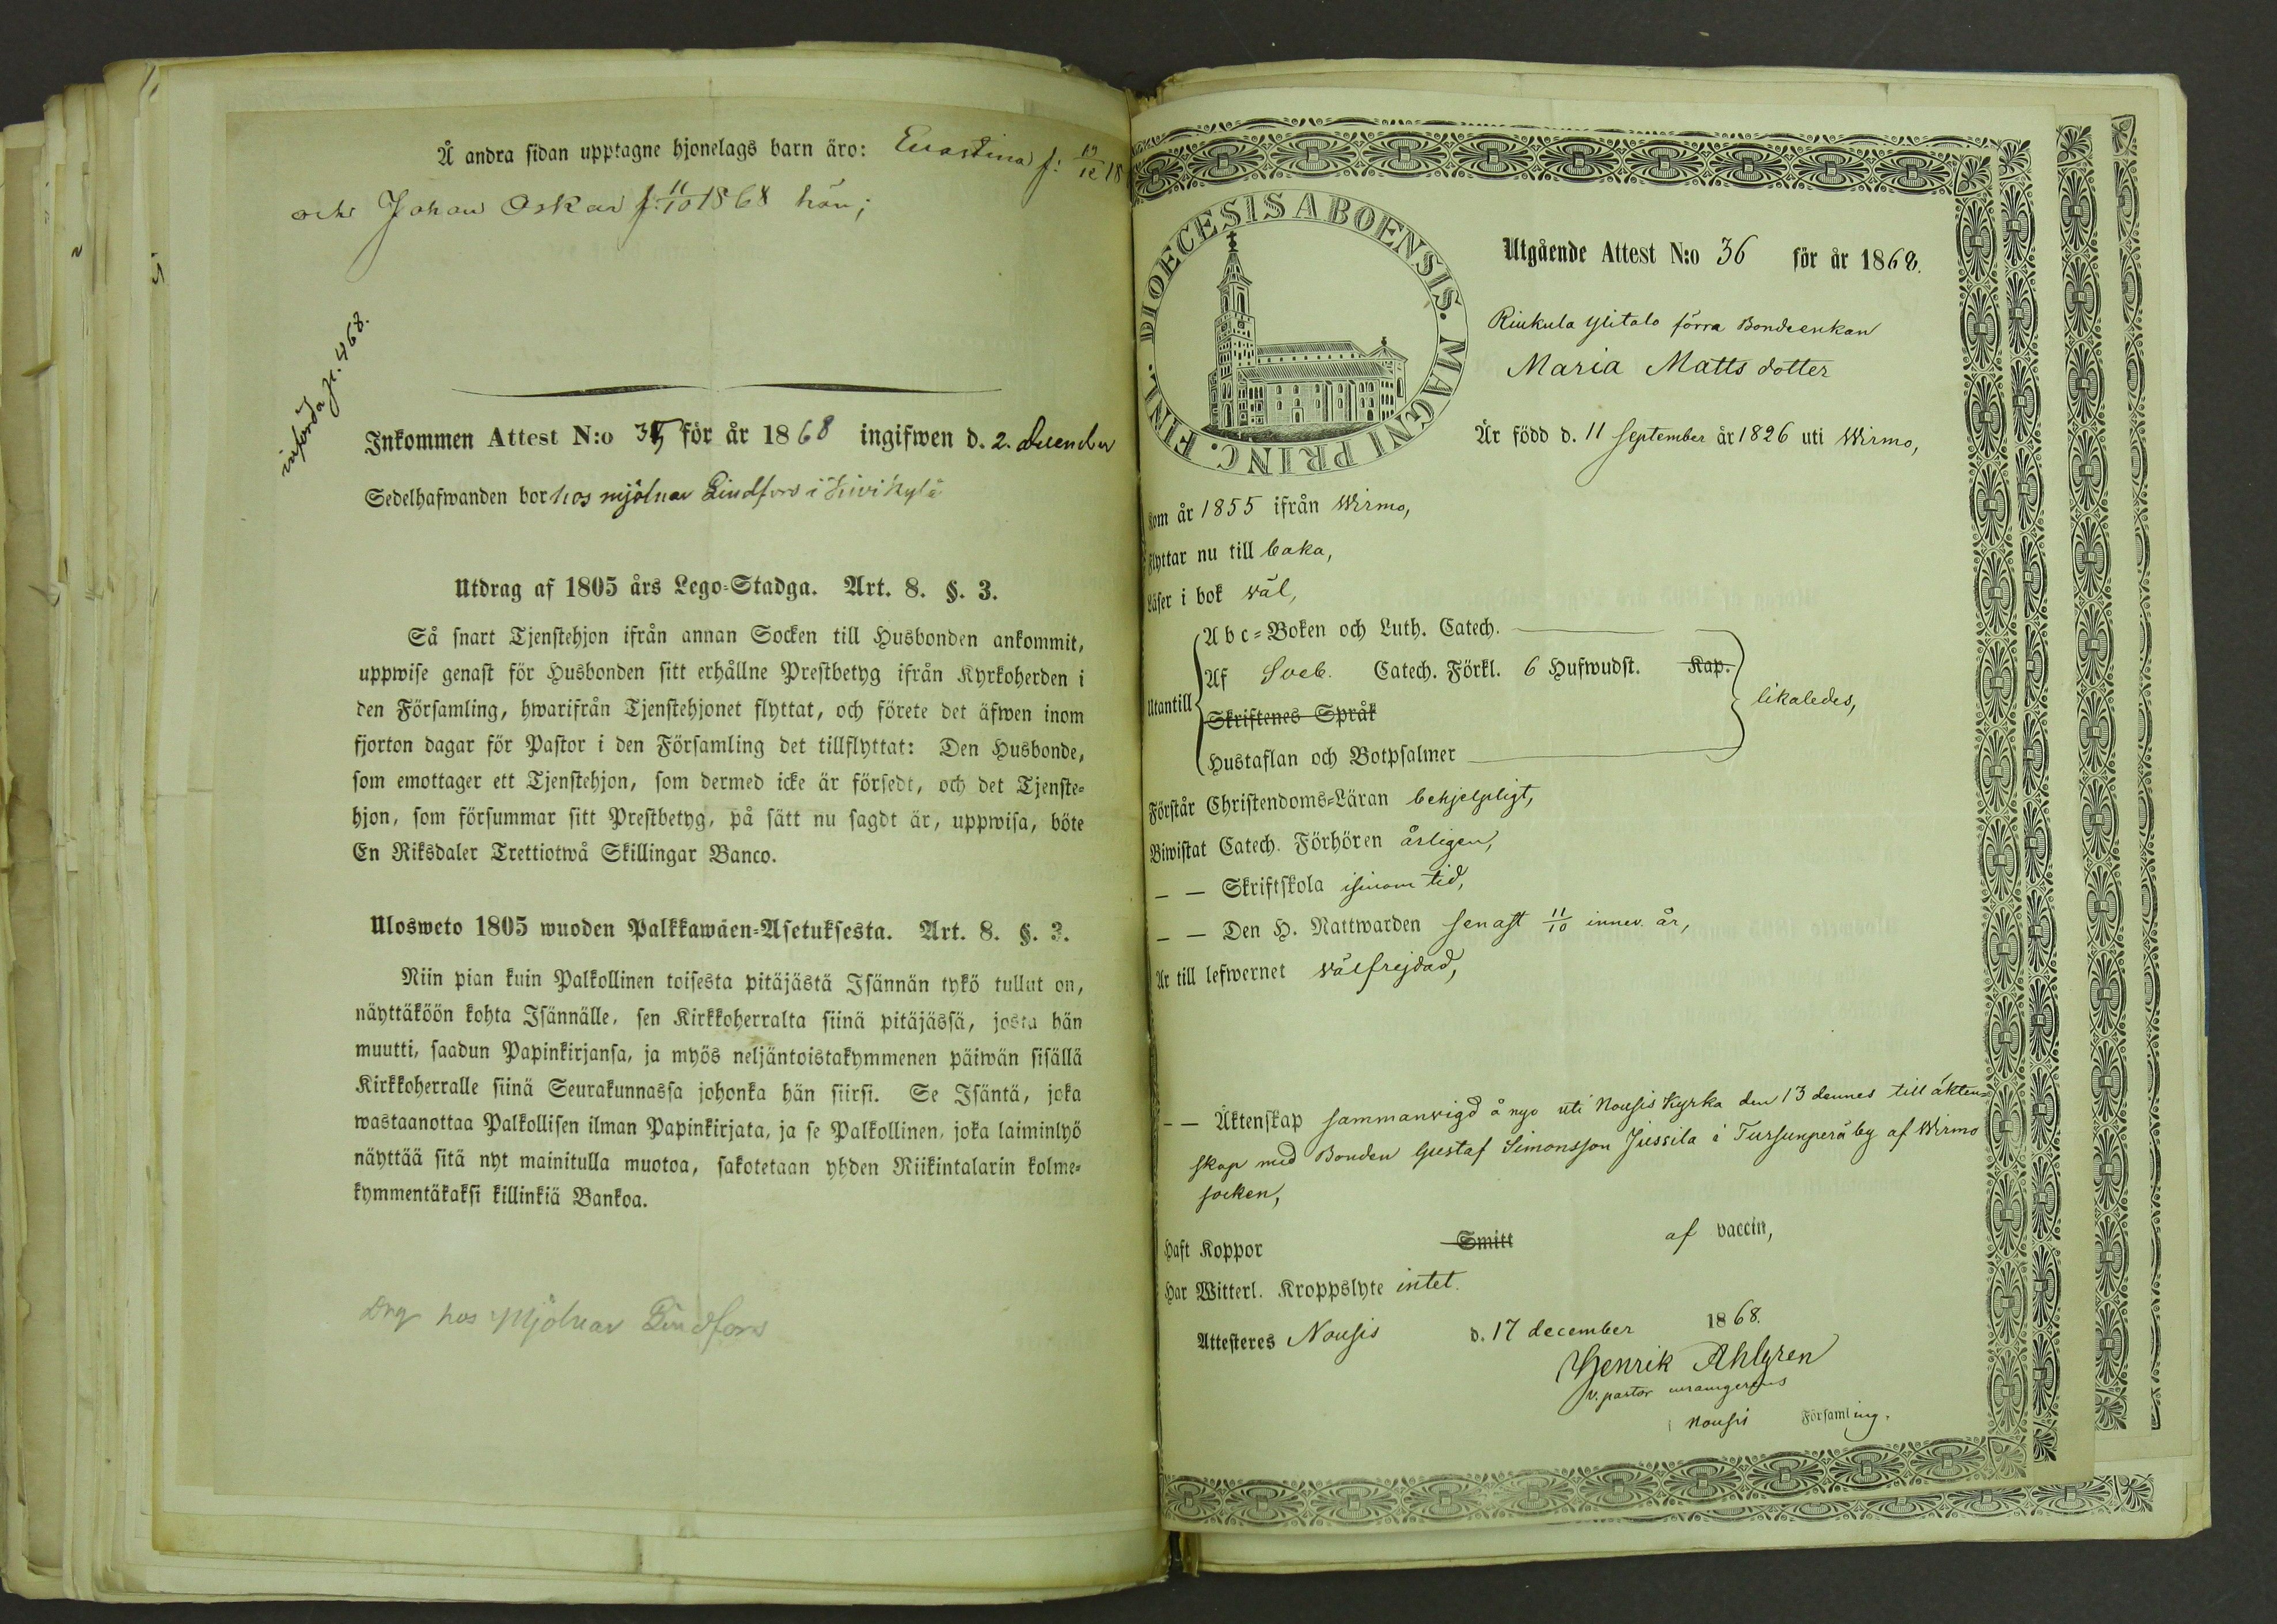 Å andra sidan upptagne hjonelags barn äro: Evastina f: 19/12 18
och Johan Oskar f: 11/10 1868 här;
införda p. 468.
Inkommen Attest N:o 35 för år 1868 ingifwen d. 2. December
Sedelhafwanden bor hos mjölnar Lindfors i Kivikylä
Utdrag af 1805 års Lego-Stadga. Art. 8. §. 3.
Så snart Tjenstehjon ifrån annan Socken till Husbonden ankommit,
uppwise genast för Husbonden sitt erhållne Prestbetyg ifrån Kyrkoherden i
den Församling, hwarifrån Tjenstehjonet flyttat, och förete det äfwen inom
fjorton dagar för Pastor i den Församling det tillflyttat: Den Husbonde,
som emottager ett Tjenstehjon, som dermed icke är försedt, och det Tjenste-
hjon, som försummar sitt Prestbetyg, på sätt nu sagdt är, uppwisa, böte
En Riksdaler Trettiotwå Skillingar Banco.
Ulosweto 1805 wuoden Palkkawäen-Asetuksesta. Art. 8. §. 3.
Niin pian kuin Palkollinen toisesta pitäjästä Isännän tykö tullut on,
näyttäköön kohta Isännälle, sen Kirkkoherralta siinä pitäjässä, josta hän
muutti, saadun Papinkirjansa, ja myös neljäntoistakymmenen päiwän sisällä
Kirkkoherralle siinä Seurakunnassa johonka hän siirsi. Se Isäntä, joka
wastaanottaa Palkollisen ilman Papinkirjata, ja se Palkollinen, joka laiminlyö
näyttää sitä nyt mainitulla muotoa, sakotetaan yhden Riikintalarin kolme-
kymmentäkaksi killinkiä Bankoa.
Drg hos Mjölnar Lindfors
DIOECESIS ABOENSIS. MAGNI PRINC. FINL.
Utgående Attest N:o 36 för år 1868.
Riukula Ylitalo förra Bondeenkan
Maria Matts dotter
Är född d. 11 September år 1826 uti Wirmo,
Kom år 1855 ifrån Wirmo,
Flyttar nu till baka,
Läser i bok väl,
Utantill
Abc-Boken och Luth. Catech.
Af Sveb. Catech. Förkl. 6 Hufwudst. Kap.
Skriftenes Språk
likaledes,
Hustaflan och Botpsalmer
Förstår Christendoms-Läran behjelpligt,
Biwistat Catech. Förhören årligen,
— — Skriftskola i sinom tid,
— — Den H. Nattwarden senast 11/10 innev. år,
Är till lefwernet välfrejdad,
— — Äktenskap sammanvigd å nyo uti Nousis Kyrka den 13 dennes till äkten-
skap med Bonden Gustaf Simonsson Jussila i Tursunperä by af Wirmo
socken,
Haft Koppor Smitt af vaccin,
Har Witterl. Kroppslyte intet.
Attesteres Nousis d. 17 december 1868.
Henrik Ahlgren
v. pastor
i Nousis Församling.